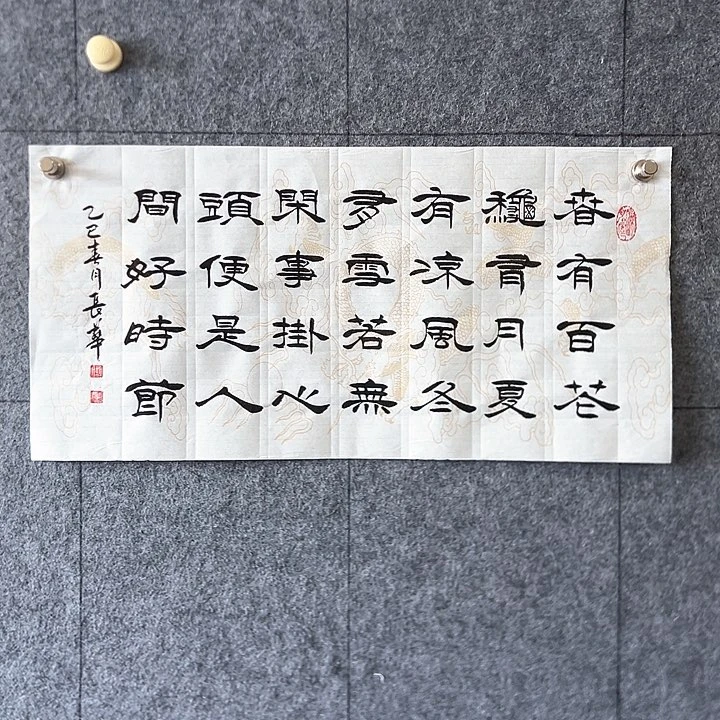 春有百花
龝有月夏
有凉風冬
有雪若無
閑事掛心
頭便是人
間好時節
乙巳春月長華